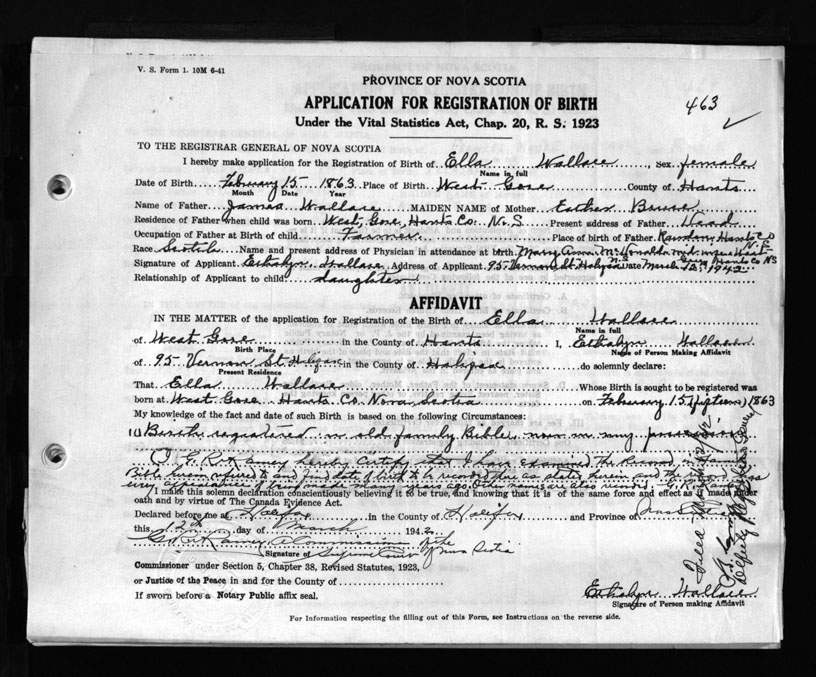 V. S. Form 1. 10M 6-41
PROVINCE OF NOVA SCOTIA
APPLICATION FOR REGISTRATION OF BIRTH
463
Under the Vital Statistics Act, Chap. 20, R. S. 1923
TO THE REGISTRAR GENERAL OF NOVA SCOTIA
I hereby make application for the Registration of Birth of Ella Wallace, Sex female
Name in full
Date of Birth February 15 1863 Place of Birth West Gore County of Hants
Month Date Year
Name of Father James Wallace MAIDEN NAME of Mother Esther
Residence of Father when child was born West Gore, Hants Co. N. S Present address of Father Dead
Occupation of Father at Birth of child Farmer Place of birth of Father Rawdon, Hants Co N. S
Race Scotch Name and present address of Physician in attendance at birth Mary Ann McDonald West Gore Hants Co NS
Signature of Applicant Ethalyn Wallace Address of Applicant 95 Vernon St. Halifax N.S Date March 12, 1942
Relationship of Applicant to child daughter
AFFIDAVIT
IN THE MATTER of the application for Registration of the Birth of Ella Wallace
Name in full
of West Gore in the County of Hants I, Ethalyn Wallace
Birth Place Name of Person Making Affidavit
of 95 Vernon St. Halifax in the County of Halifax do solemnly declare:
Present Residence
That Ella Wallace Whose Birth is sought to be registered was
born at West Gore Hants Co Nova Scotia on February 15 (fifteen) 1863
My knowledge of the fact and date of such Birth is based on the following Circumstances:
(1) Birth registered in old family Bible now in my possession
I hereby certify that I have examined the Record in the
Bible
I make this solemn declaration conscientiously believing it to be true, and knowing that it is of the same force and effect as if made under
oath and by virtue of The Canada Evidence Act.
Declared before me at Halifax in the County of Halifax and Province of Nova Scotia
this 12th day of March 1942
A Commissioner of the
Signature of Supreme Court of Nova Scotia
Commissioner under Section 5, Chapter 38, Revised Statutes, 1923,
or Justice of the Peace in and for the County of
If sworn before a Notary Public affix seal.
Ethalyn Wallace
Signature of Person making Affidavit
For Information respecting the filling out of this Form, see Instructions on the reverse side.